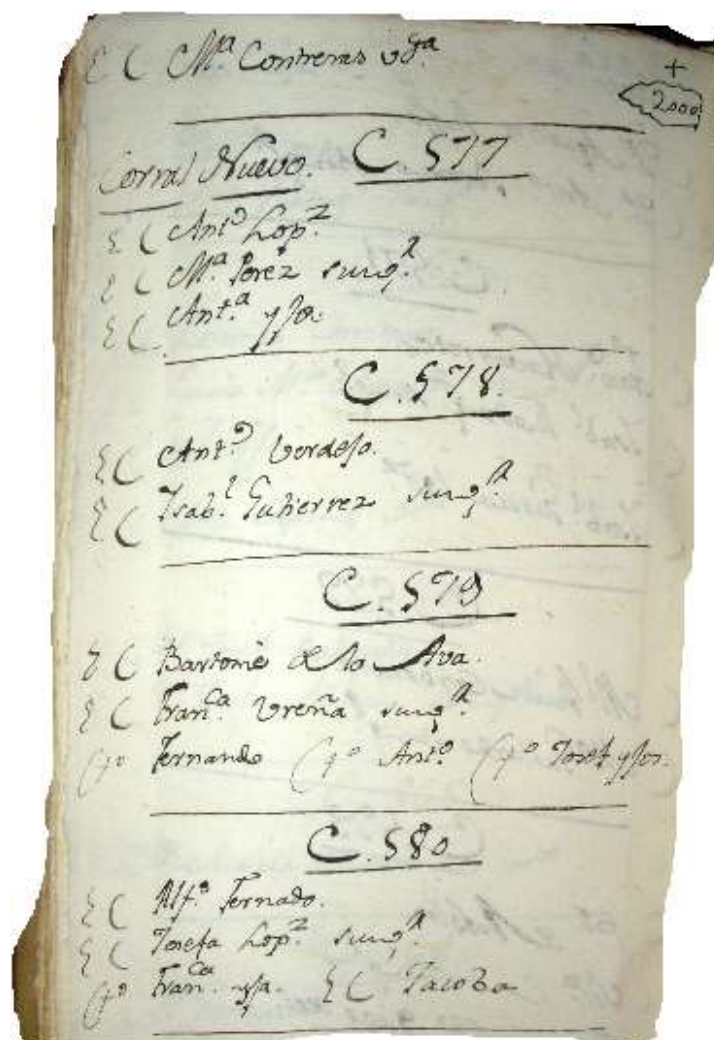 E C Mª Contreras vdª
+
2000
Corral Nuevo. C. 577
E C Antº Lopz
E C Mª Perez sumgª
E C Antª yja
C. 578.
E C Antº Verdejo.
E C Isabl Gutierrez sumgª
C. 579
E C Bartome de la Ava.
E C Francª Vreña sumgª
Cfº Fernando Cfº Antº Cfº Josef yjos.
C. 580
E C Alfº Fernado.
E C Josefa Lopz sumgª
Cfº Francª yja. E C Jacoba